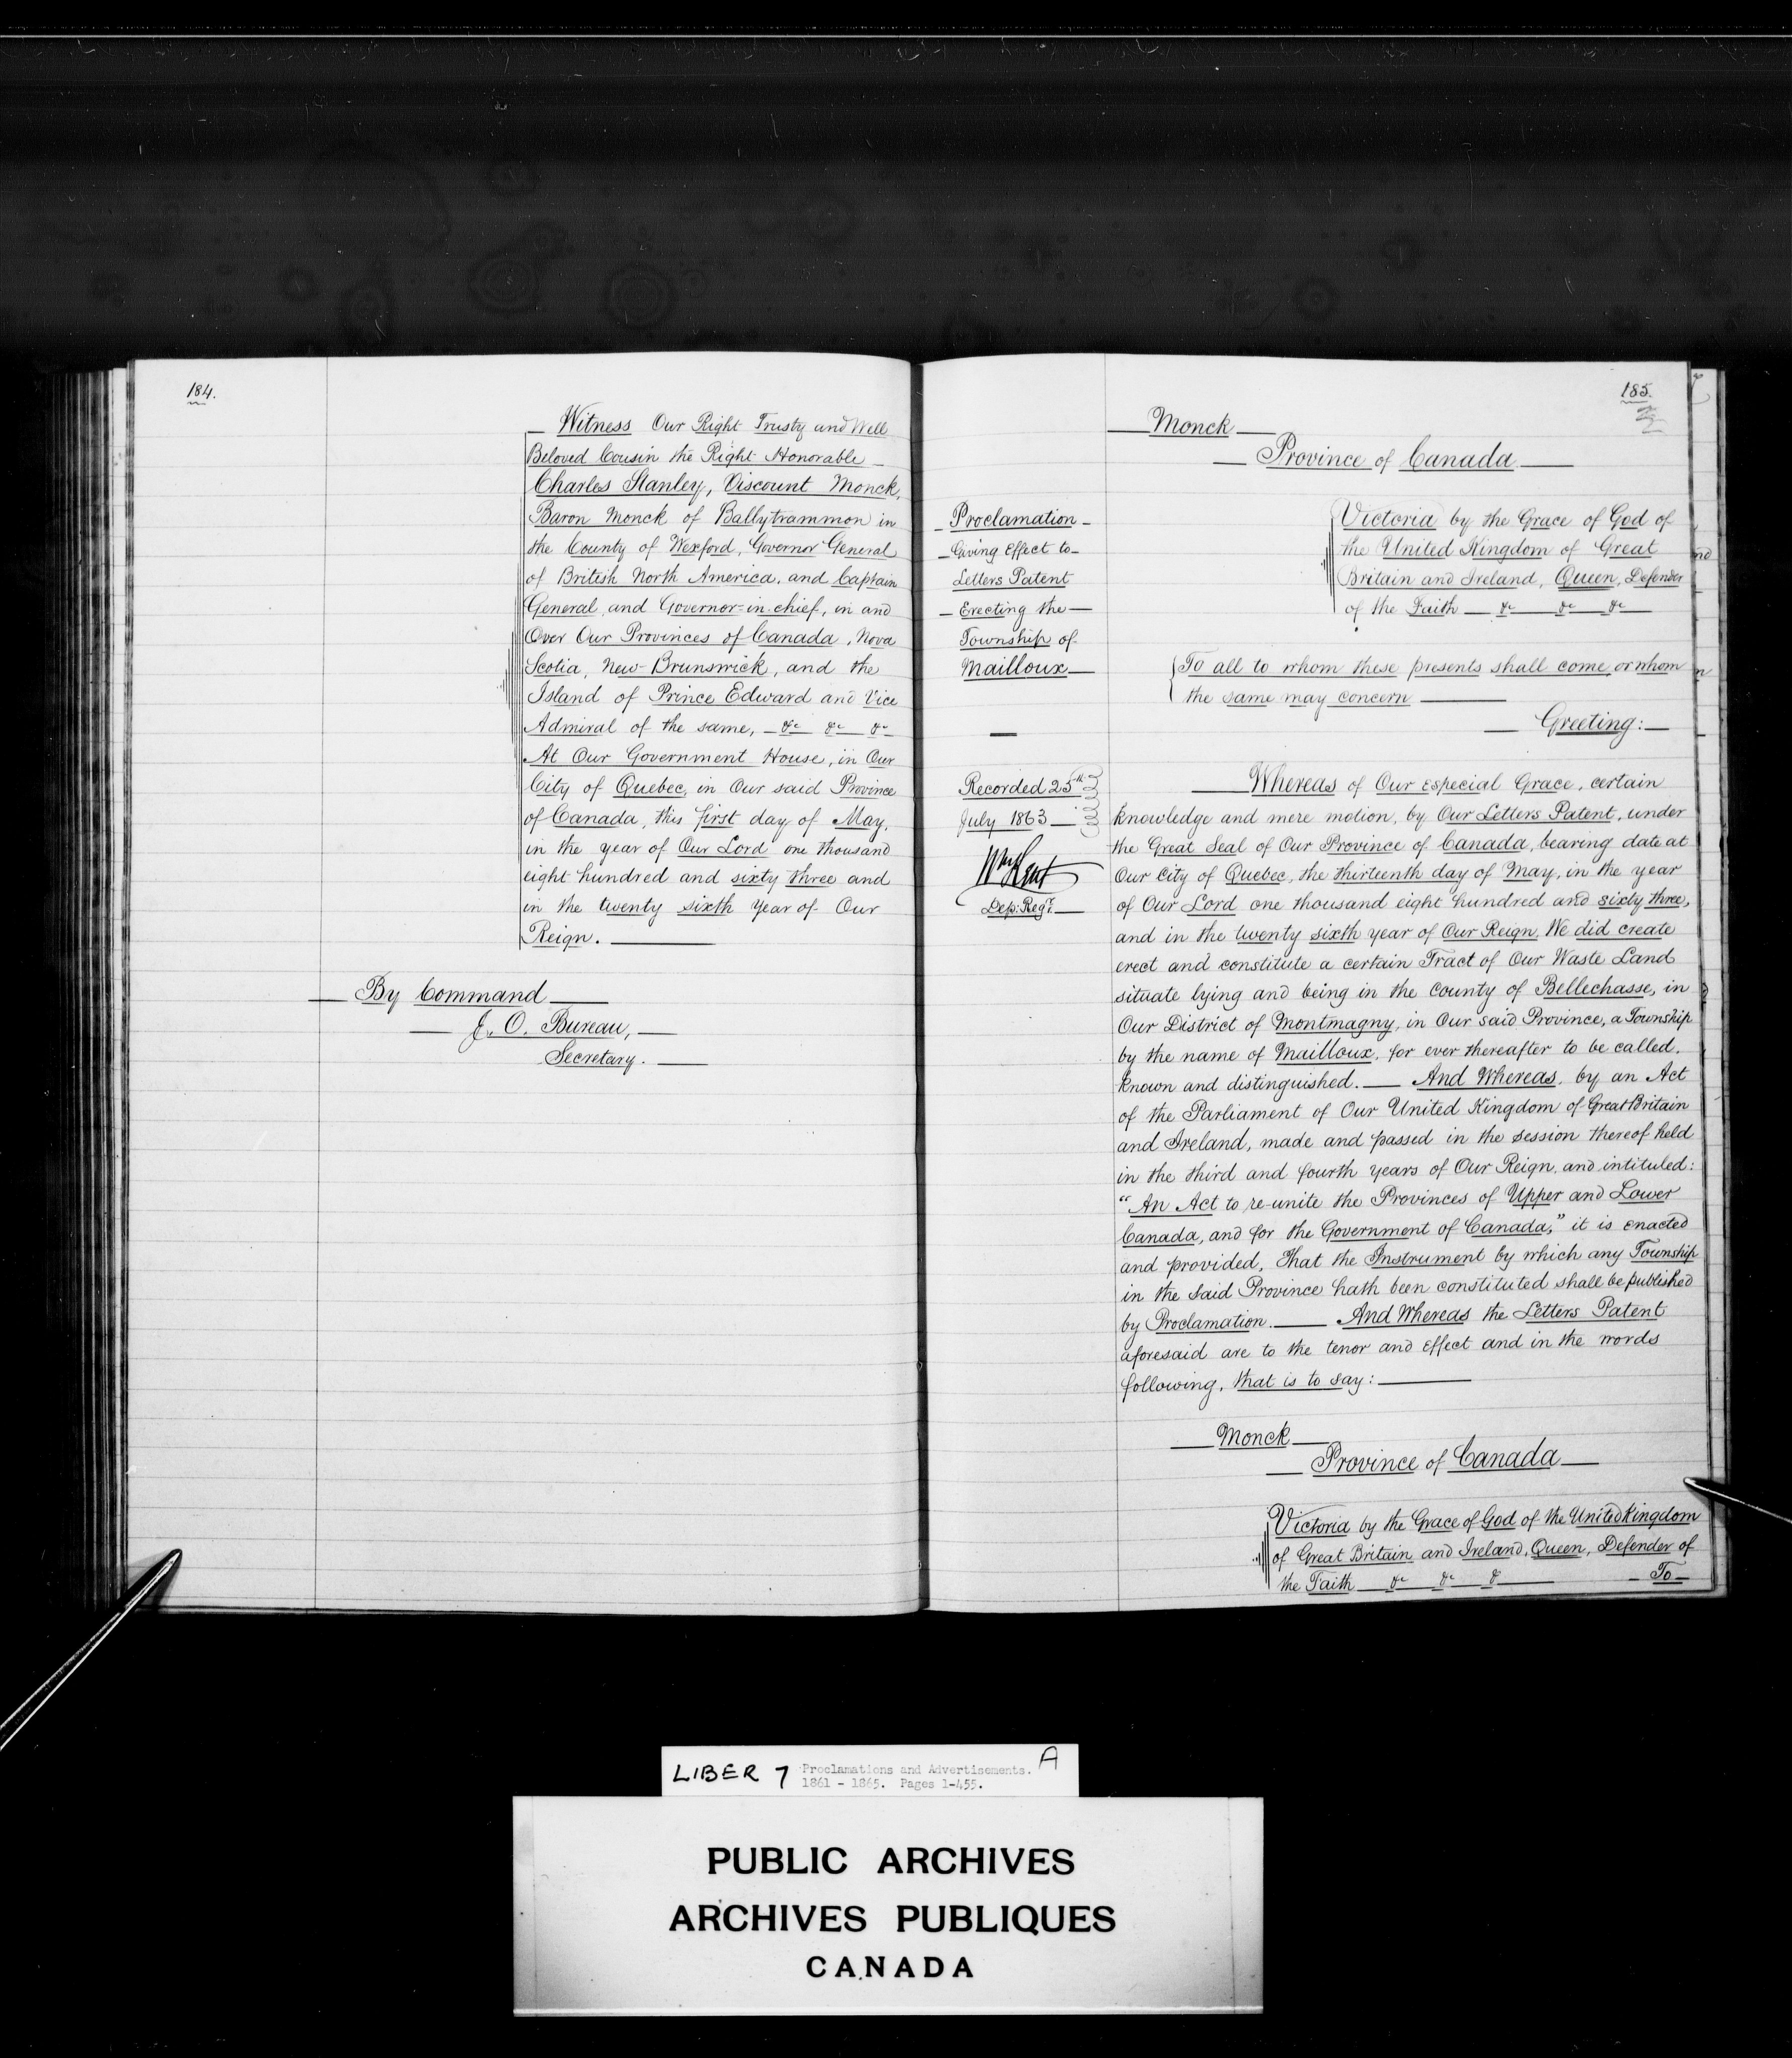 184.
Witness Our Right Trusty and Well
Beloved Cousin the Right Honorable
Charles Stanley, Viscount Monck,
Baron Monck of Ballytrammon in
the County of Wexford, Governor General
of British North America, and Captain
General and Governor=in-chief, in and
Over Our Provinces of Canada, Nova
Scotia, New-Brunswick, and the
Island of Prince Edward and Vice
Admiral of the same, &c &c &c
At Our Government House, in Our
City of Quebec, in Our said Province
of Canada, this first day of May,
in the year of Our Lord one thousand
eight hundred and sixty three and
in the twenty sixth Year of Our
Reign.
By Command
J. O. Bureau,
Secretary.
185.
Monck
Province of Canada
Proclamation
Giving Effect to
Letters Patent
Erecting the
Township of
Mailloux
Recorded 25th
July 1863
Wm Kent
Dep: Regr.
Victoria by the Grace of God of
the United Kingdom of Great
Britain and Ireland, Queen, Defender
of the Faith &c &c &c
To all to whom these presents shall come, or whom
the same may concern
Greeting:
Whereas of Our especial Grace, certain
knowledge and mere motion, by Our Letters Patent, under
the Great Seal of Our Province of Canada, bearing date at
Our City of Quebec, the thirteenth day of May, in the year
of Our Lord one thousand eight hundred and sixty three,
and in the twenty sixth year of Our Reign, We did create
erect and constitute a certain Tract of Our Waste Land
situate lying and being in the County of Bellechasse, in
Our District of Montmagny, in Our said Province, a Township
by the name of Mailloux, for ever thereafter to be called,
known and distinguished. And Whereas, by an Act
of the Parliament of Our United Kingdom of Great Britain
and Ireland, made and passed in the session thereof held
in the third and fourth years of Our Reign, and intituled:
"An Act to re-unite the Provinces of Upper and Lower
Canada, and for the Government of Canada," it is enacted
and provided, That the Instrument by which any Township
in the said Province hath been constituted shall be published
by Proclamation. And Whereas the Letters Patent
aforesaid are to the tenor and effect and in the words
following, that is to say:
Monck
Province of Canada
Victoria by the Grace of God of the United Kingdom
of Great Britain and Ireland, Queen, Defender of
the Faith &c &c &
To
LIBER 7 Proclamations and Advertisements. A
1861 - 1865. Pages 1-455.
PUBLIC ARCHIVES
ARCHIVES PUBLIQUES
CANADA